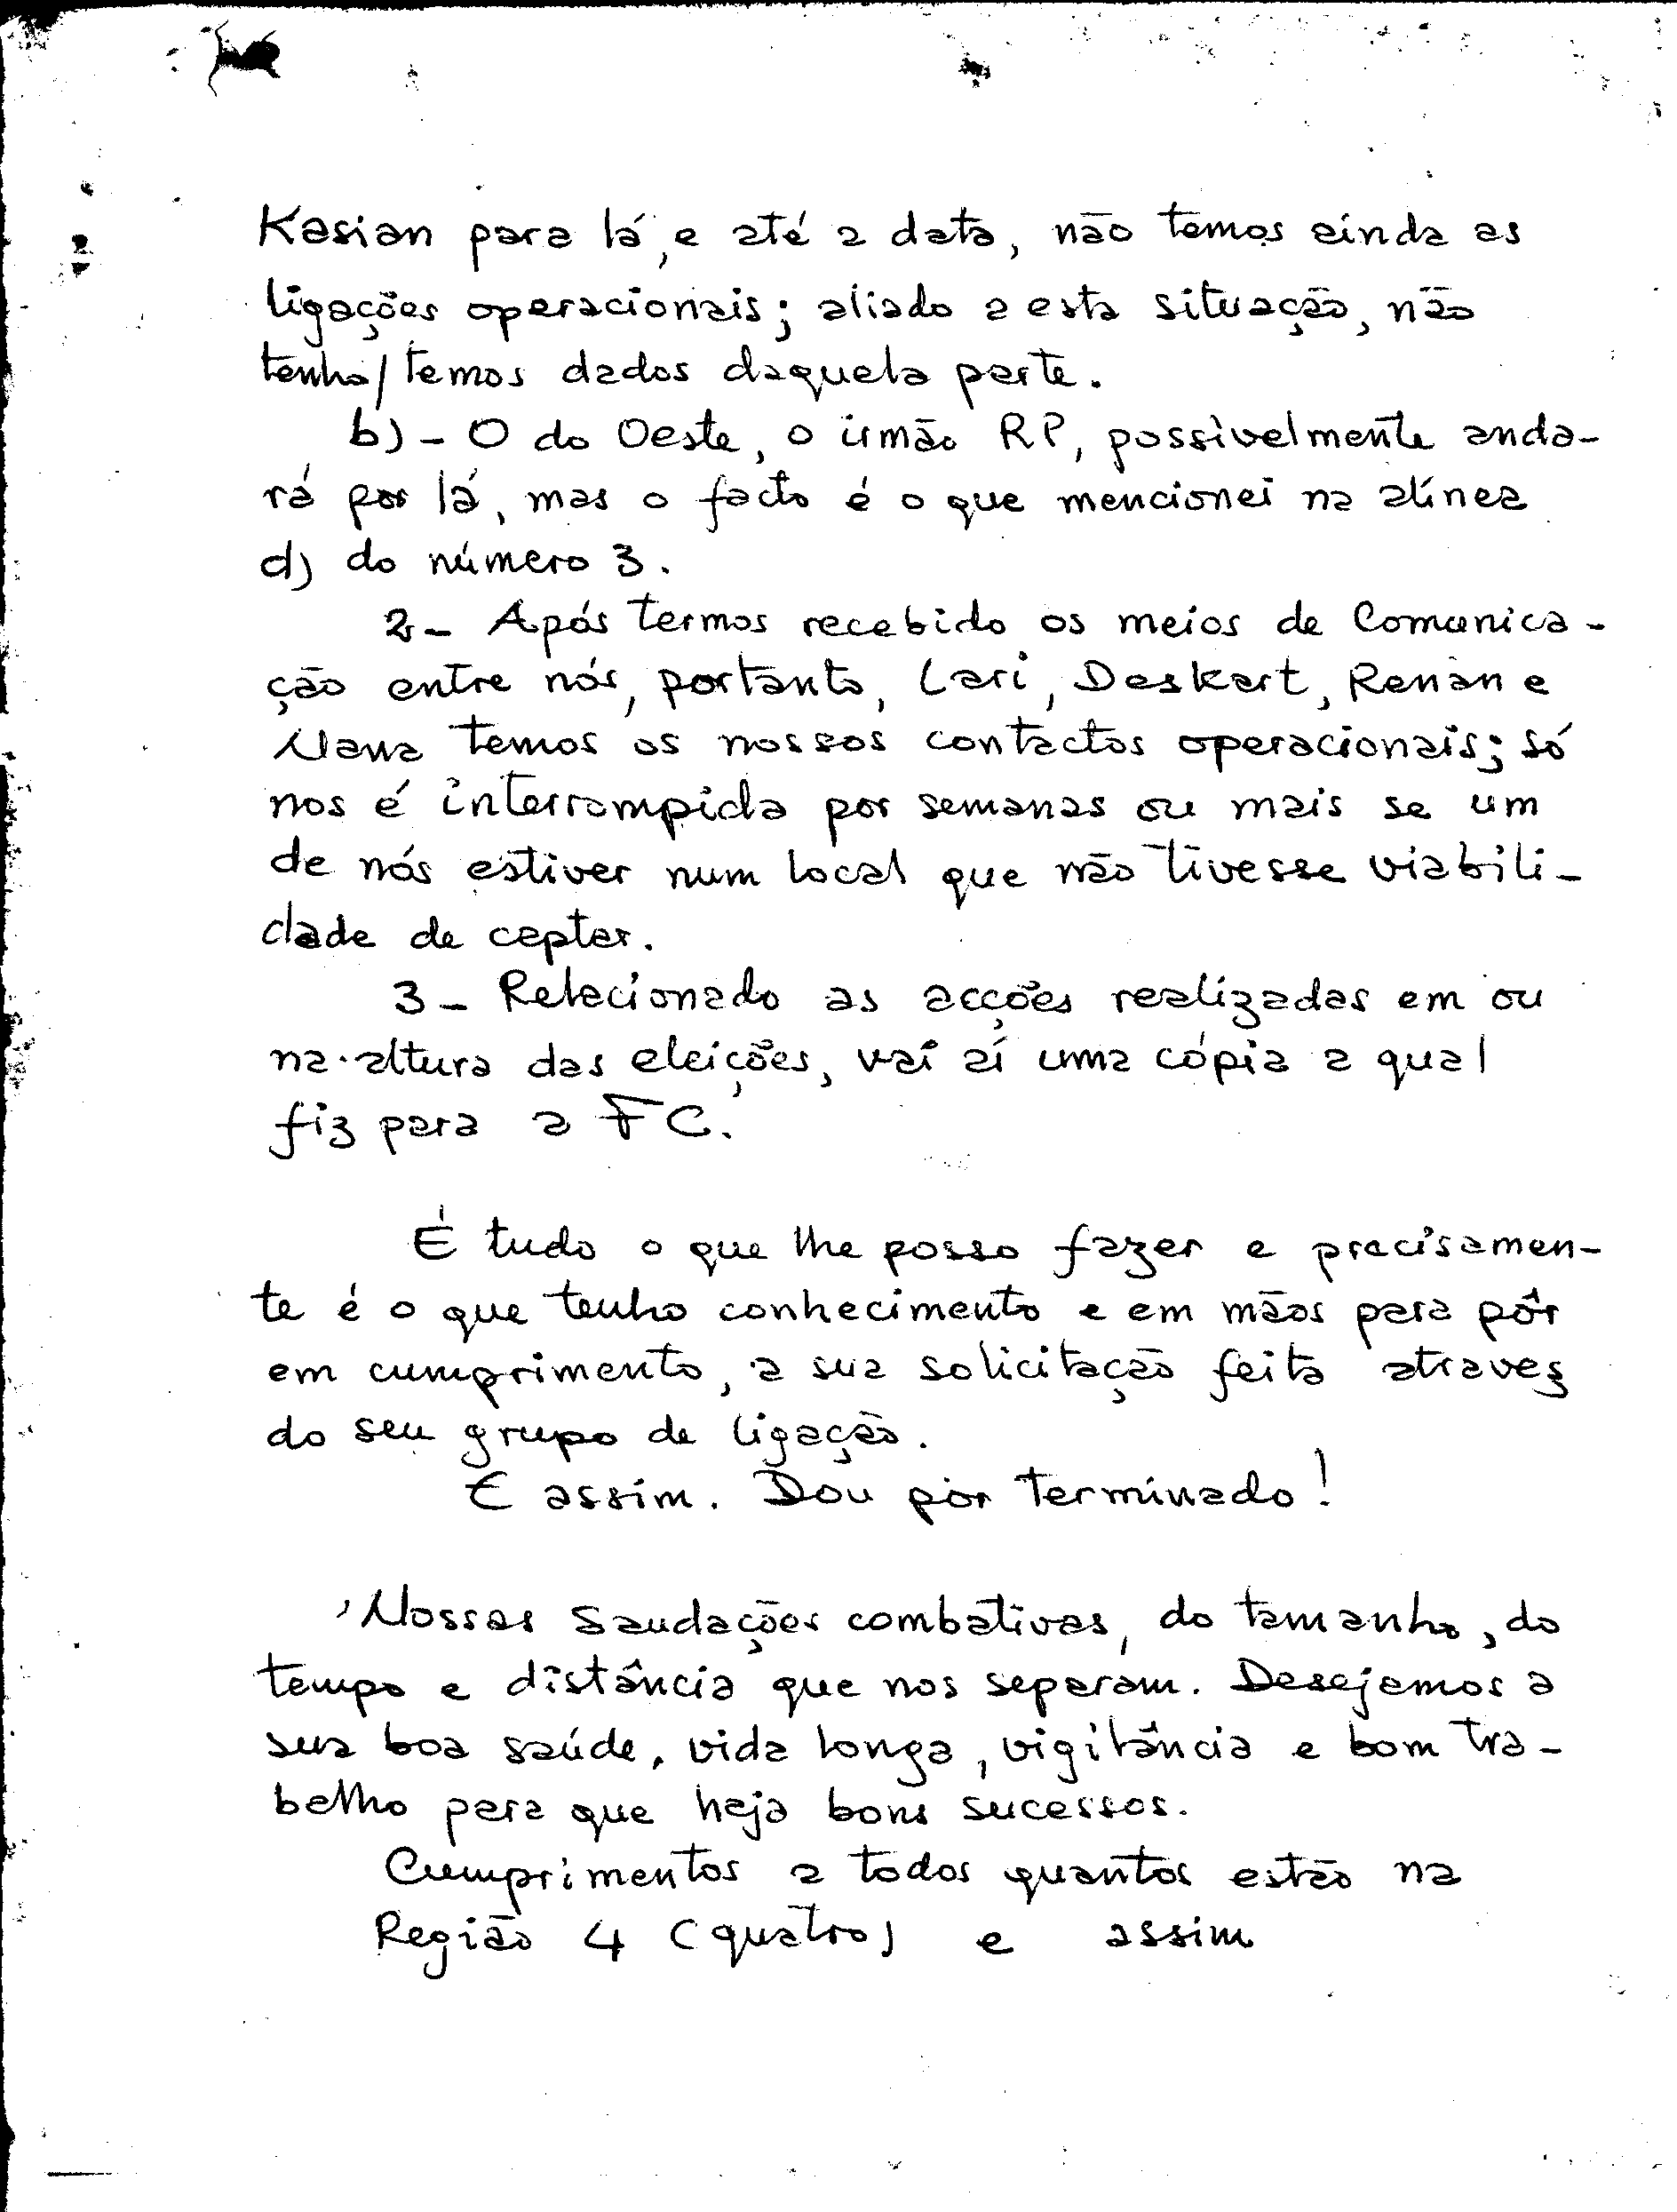 Kasian para lá, e até a data, não temos ainda as
ligações operacionais; aliado a esta situação, não
tenho/temos dados daquela parte.
b) - O do Oeste, o irmão RP, possivelmente anda-
rá por lá, mas o facto é o que mencionei na alínea
d) do número 3.
2 - Após termos recebido os meios de Comunica-
ção entre nós, portanto, Lari, Deskart, Renan e
Nawa temos os nossos contactos operacionais; só
nos é interrompida por semanas ou mais se um
de nós estiver num local que não tivesse viabili-
dade de captar.
3 - Relacionado as acções realizadas em ou
na altura das eleições, vai aí uma cópia a qual
fiz para a FC.
É tudo o que lhe posso fazer e precisamen-
te é o que tenho conhecimento e em mãos para pôr
em cumprimento, a sua solicitação feita atravez
do seu grupo de ligação.
E assim. Dou por terminado!
Nossas Saudações combativas, do tamanho, do
tempo e distância que nos separam. Desejamos a
sua boa saúde, vida longa, vigilância e bom tra-
balho para que haja bons sucessos.
Cumprimentos a todos quantos estão na
Região 4 (quatro) e assim